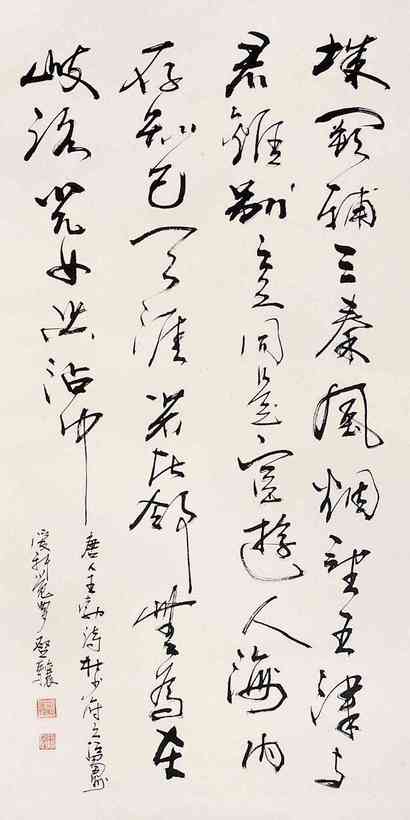 城闕輔三秦風烟望五津与
君離別意同是宦遊人海内
存知己天涯若比鄰無為在
岐路兒女共沾巾
唐人王勃詩杜少府之
愛新覺羅啟驤